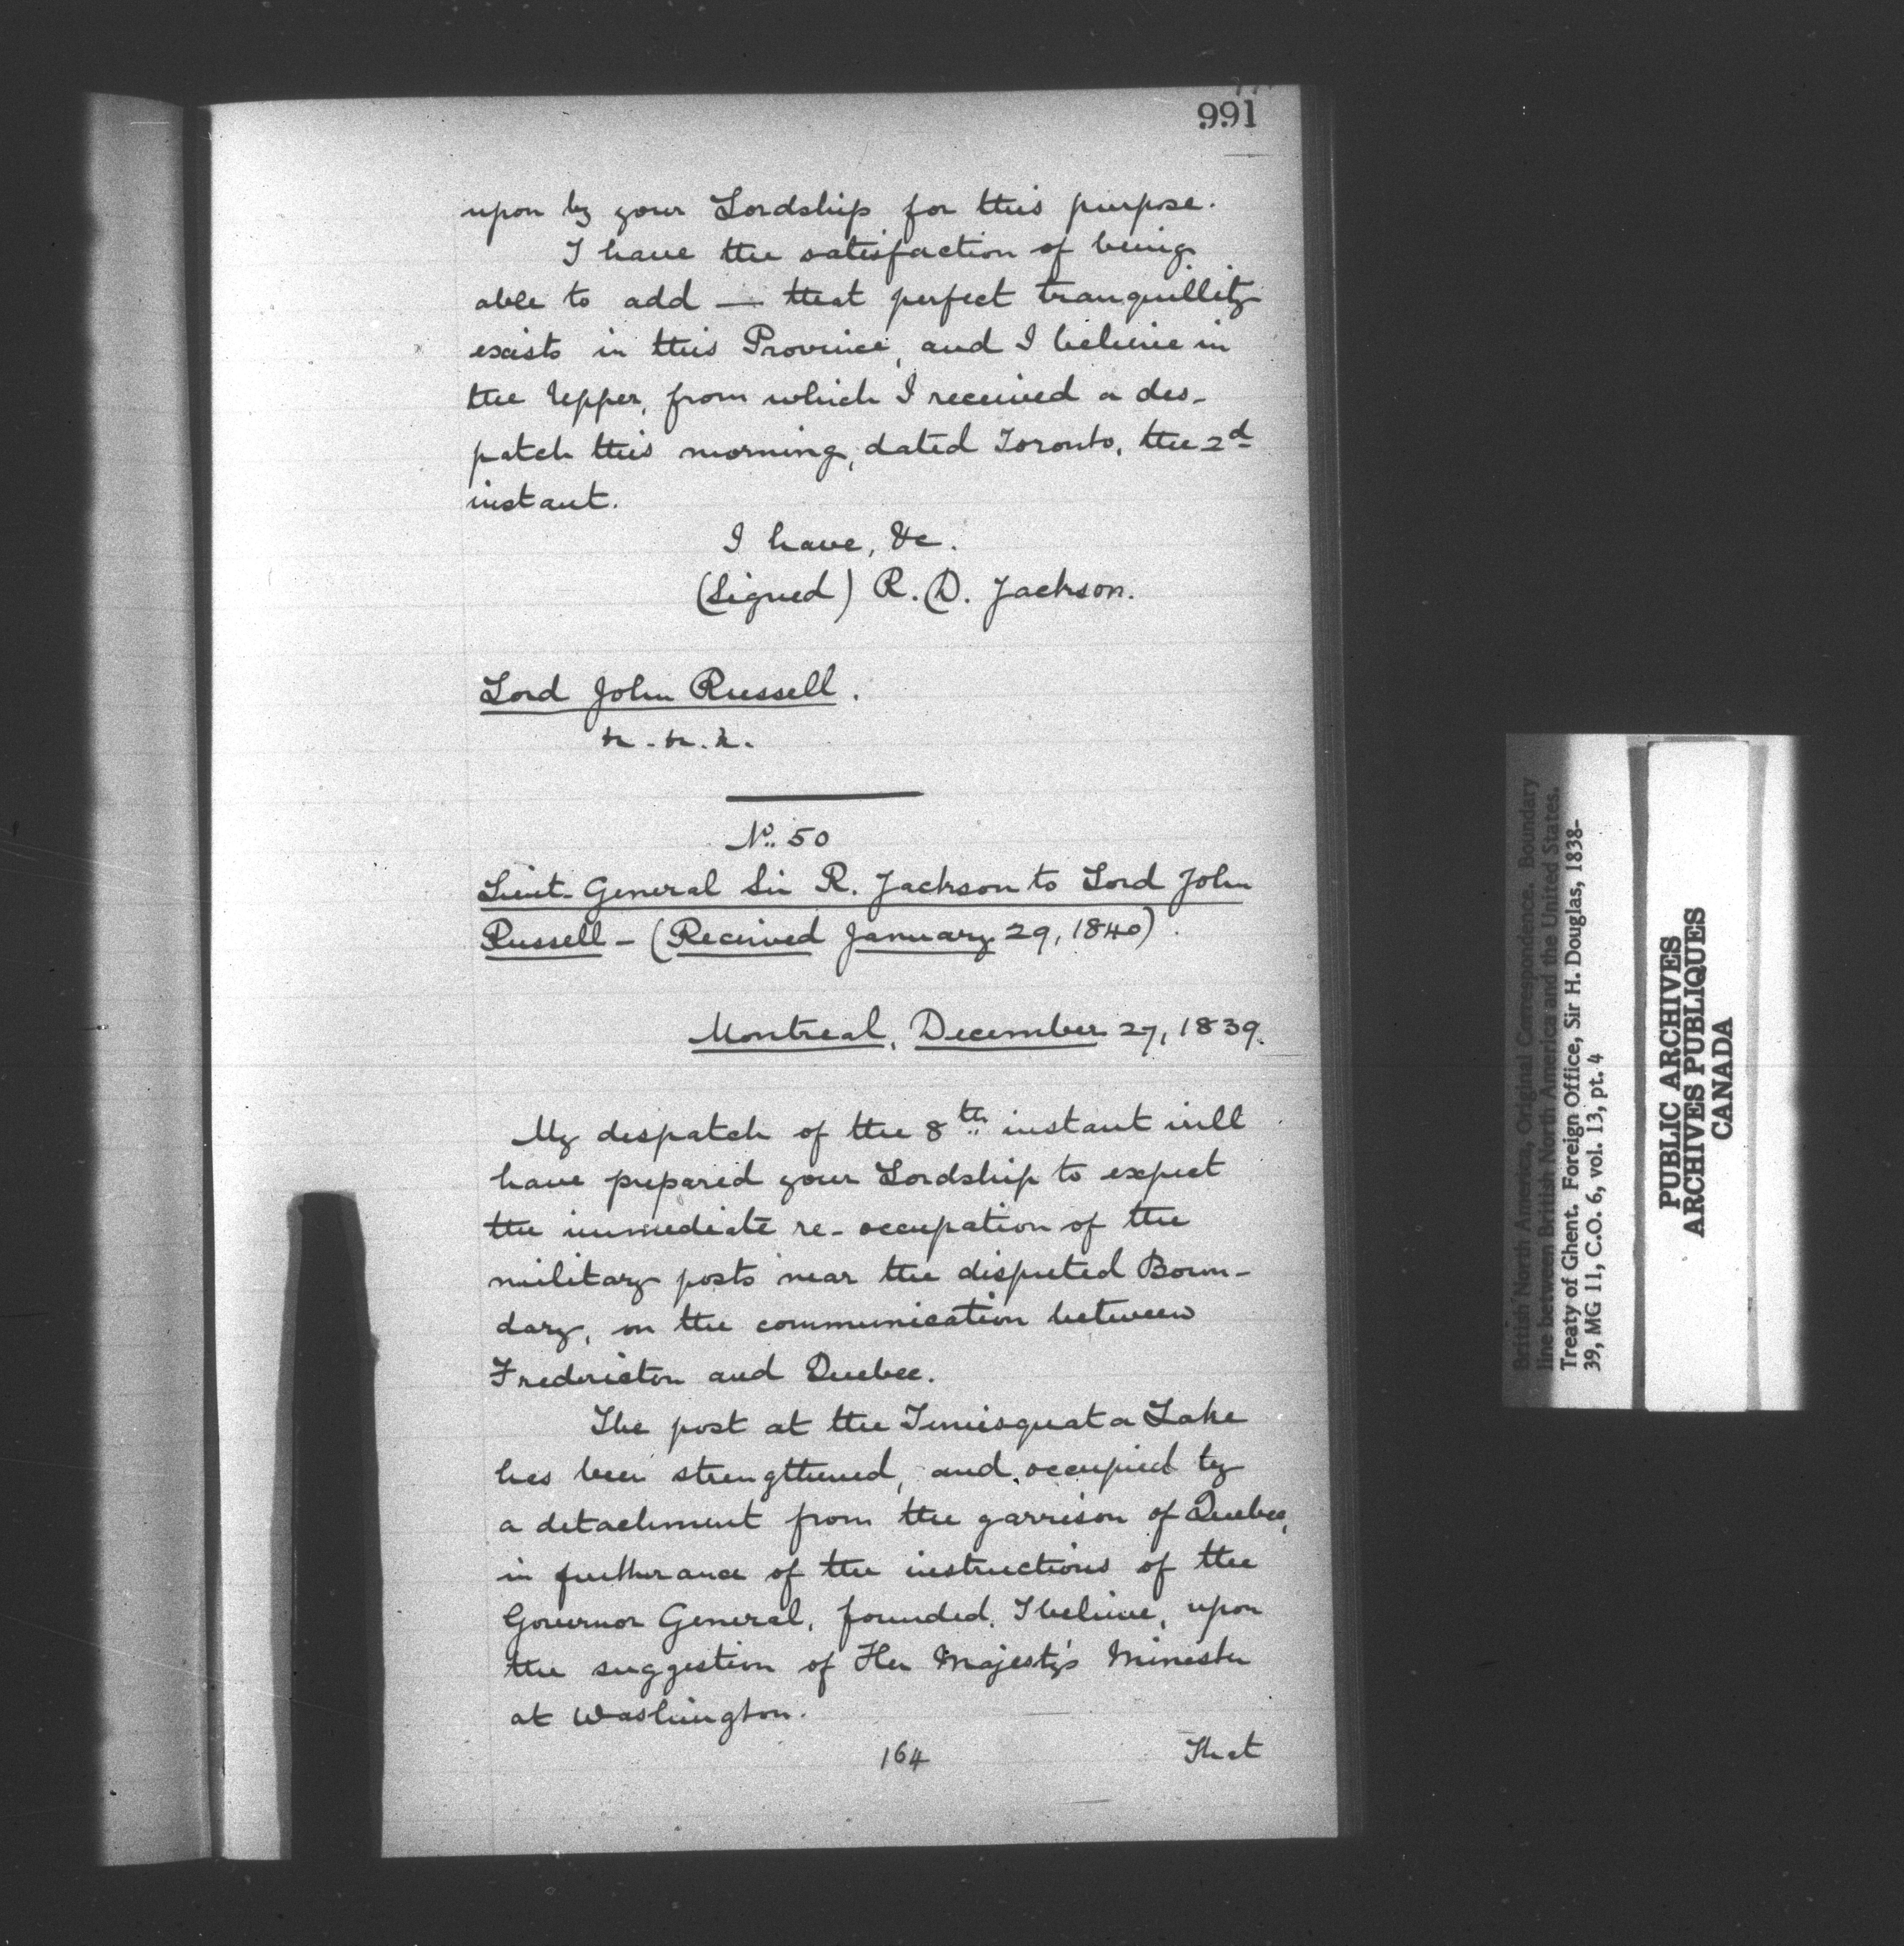 991
upon by your Lordship for this purpose.
I have the satisfaction of being
able to add — that perfect tranquillity
exists in this Province, and I believe in
the Upper, from which I received a des-
patch this morning, dated Toronto, the 2d
instant.
I have, &c.
(Signed) R. D. Jackson.
Lord John Russell.
&c. &c. &c.
No. 50
Lieut-General Sir R. Jackson to Lord John
Russell – (Received January 29, 1840).
Montreal, December 27, 1839.
My despatch of the 8th instant will
have prepared your Lordship to expect
the immediate re-occupation of the
military posts near the disputed Boun-
dary, on the communication between
Fredericton and Quebec.
The post at the Temisquata Lake
has been strengthened, and occupied by
a detachment from the garrison of Quebec,
in furtherance of the instructions of the
Governor General, founded, I believe, upon
the suggestion of Her Majesty's Minister
at Washington.
164
That
British North America, Original Correspondence. Boundary
line between British North America and the United States.
Treaty of Ghent. Foreign Office, Sir H. Douglas, 1838-
39, MG 11, C.O. 6, vol. 13, pt. 4
PUBLIC ARCHIVES
ARCHIVES PUBLIQUES
CANADA